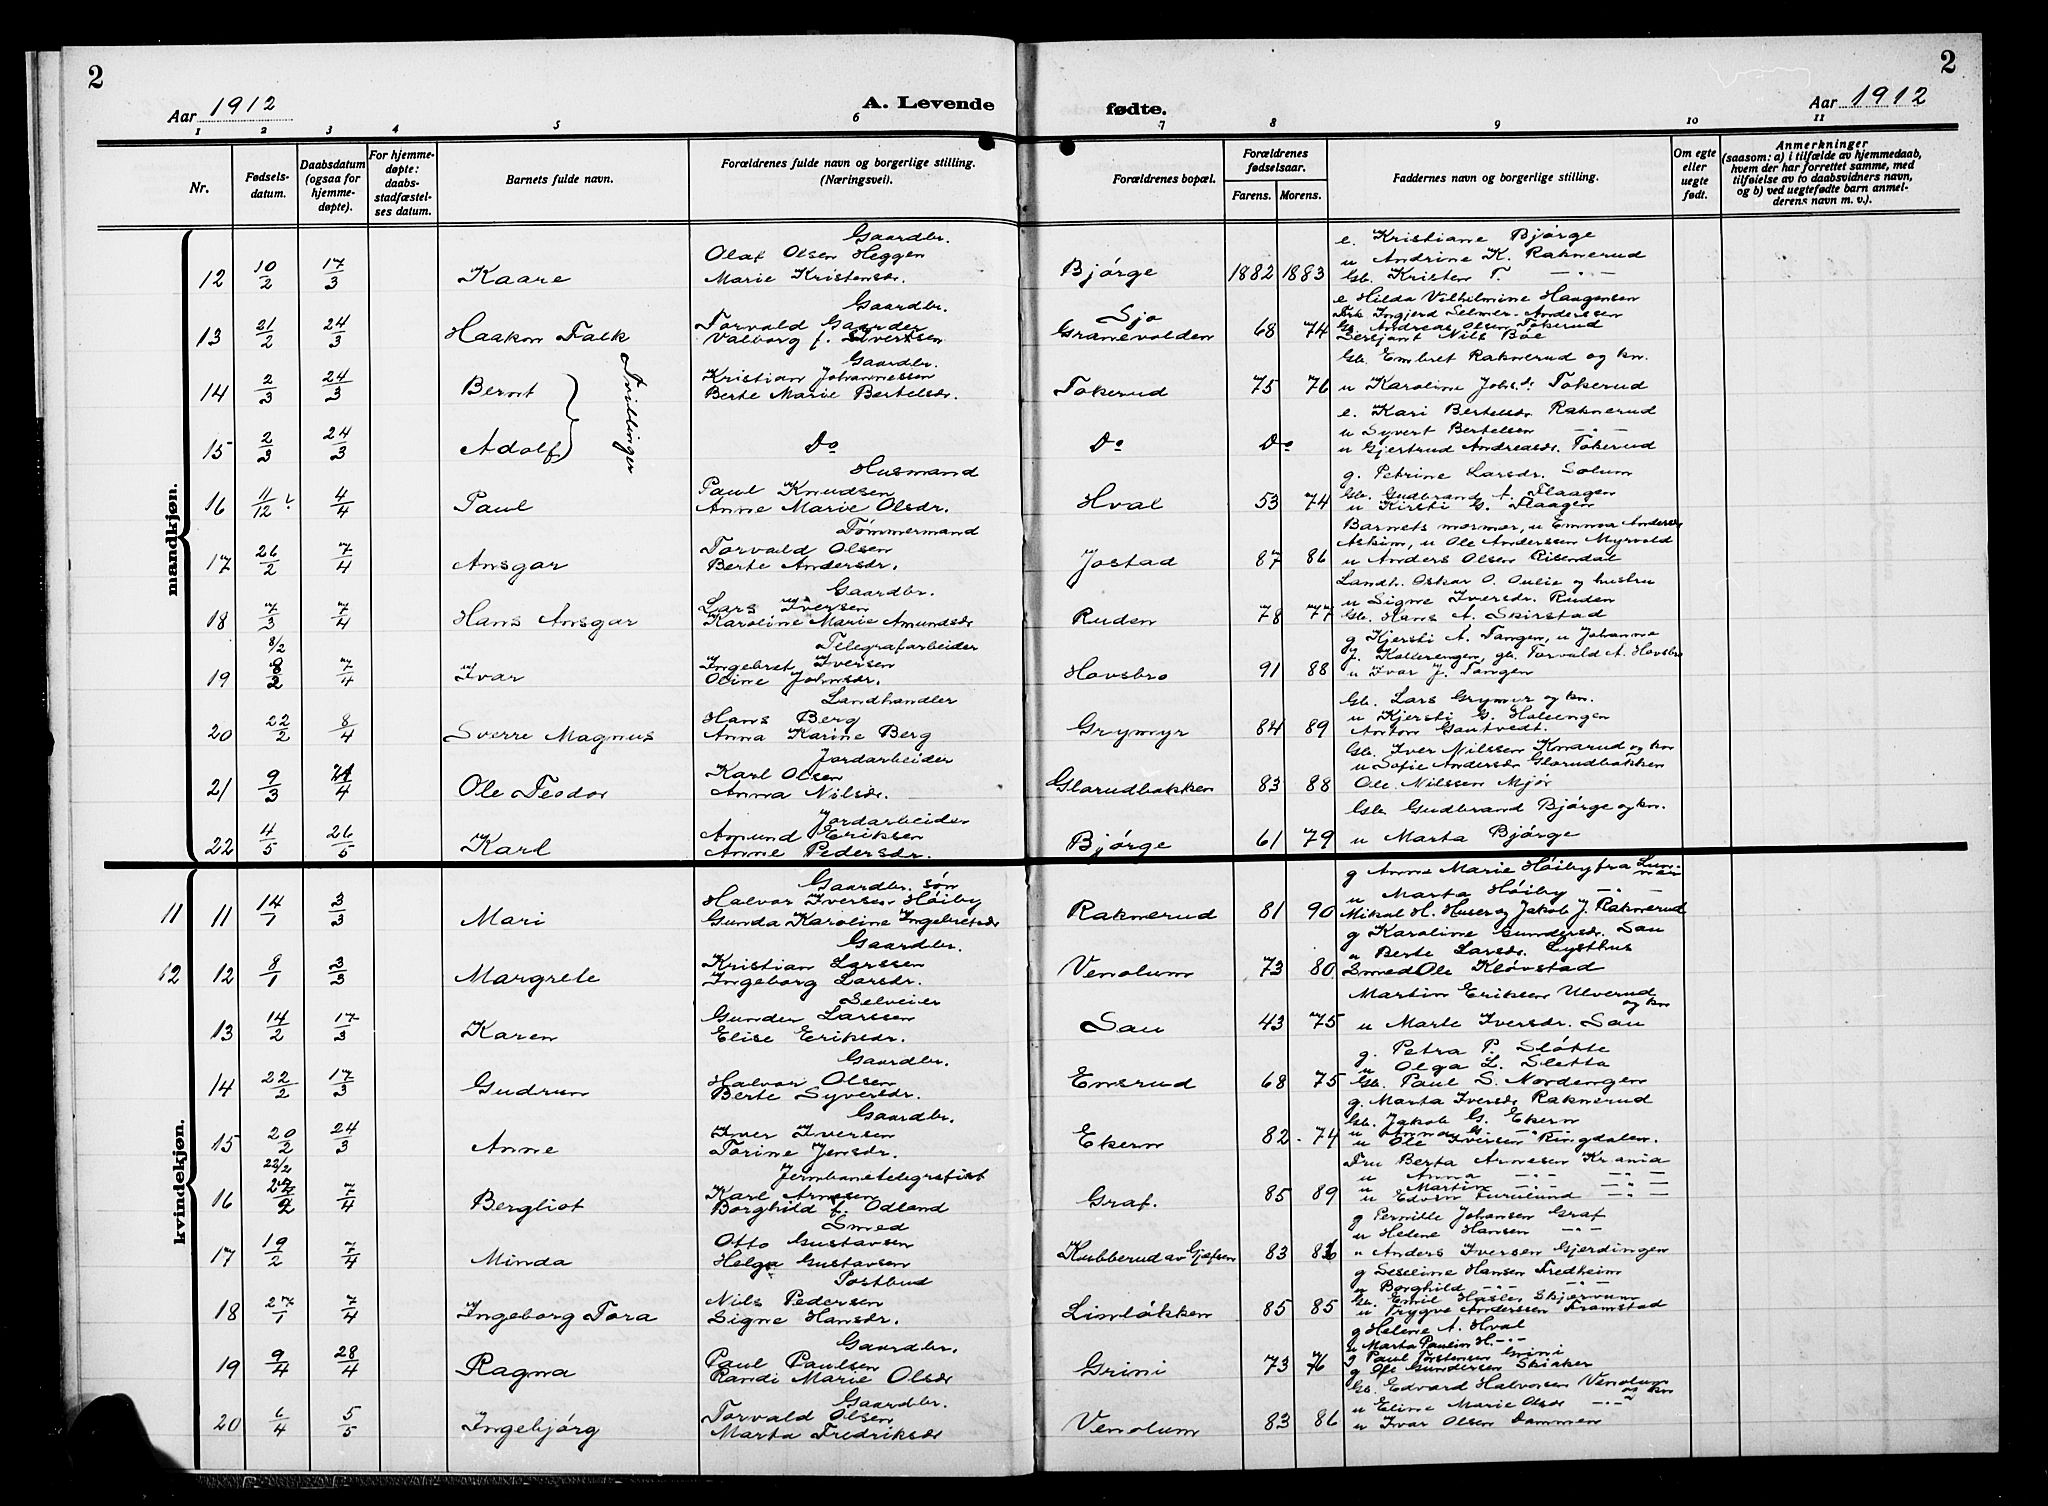 2
2
Aar 1912
A. Levende
fødte.
Aar 1912
1 2 3 4 5 6 7 8 9 10 11
Nr.
Fødsels-
datum.
Daabsdatum
(ogsaa for
hjemme-
døpte).
For hjemme-
døpte:
daabs-
stadfæstel-
ses datum.
Barnets fulde navn.
Forældrenes fulde navn og borgerlige stilling.
(Næringsvei).
Forældrenes bopæl.
Forældrenes
fødselsaar.
Farens. Morens.
Faddernes navn og borgerlige stilling.
Om egte
eller
uegte
født.
Anmerkninger
(saasom: a) i tilfælde av hjemmedaab,
hvem der har forrettet samme, med
tilføielse av to daabsvidners navn,
og b) ved uegtefødte barn anmel-
derens navn m. v.).
mandkjøn.
Gaardbr.
Olaf Olsen Heggen
12 10/2 17/3 Kaare Marie Kristensdr. Bjørge 1882 1883
e. Kristiane Bjørge
u Andrine K. Raknerud
Gb. Kristen T. -"-
Gaardbr.
Torvald Gaarder
13 21/2 24/3 Haakon Falk Valborg f. Sivertsen Sjo Granevolden 68 74
e Hilda Vilhelmine Haagensen
Frk Ingjerd Selmer-Anderssen
Gb. Andreas Olsen Tokerud
Sersjant Nils Boe
Gaardbr.
Kristian Johannessen
14 2/3 24/3 Bernt Tvillinger Berte Marie Bertelsdr. Tokerud 75 76
Gb. Embret Raknerud og kn.
u Karoline Johs.dr Tokerud
15 2/3 24/3 Adolf Do Do Do
e. Kari Bertelsdr Raknerud
u Syvert Bertelsen -"-
u Gjertrud Andreasdr. Tokerud
Husmand
Paul Knudsen
16 11/12 ? 4/4 Paul Anne Marie Olsdr. Hval 53 74
g. Petrine Larsdr. Solum
Gb. Gudbrand A. Flaagen
u Kirsti G. Flaagen
Tømmermand
Torvald Olsen
17 26/2 7/4 Ansgar Berte Andersdr. Jostad 87 86
Barnets mormor, u Emma Andersdr
Askim, u Ole Anderssen Myrvold
u Anders Olsen Risendal
Gaardbr.
Lars Iversen
18 7/3 7/4 Hans Ansgar Karoline Marie Amundsdr Ruden 78 77
Landh. Oskar O. Oulie og hustru
u Signe Iversdr. Ruden
Gb. Hans A. Skirstad
8/2
Telegrafarbeider
Ingebret Iversen
19 8/2 7/4 Ivar Oline Johnsdr. Hovsbro 91 88
g Kjersti A. Tangen, u Johanne
J. Kollerengen, gb. Torvald A. Hovsbro
u Ivar J. Tangen
Landhandler
Hans Berg
20 22/2 8/4 Sverre Magnus Anna Karine Berg Grymyr 84 89
Gb. Lars Grymyr og kn.
u Kjersti G. Halvengen
Anton Gautvedt.
Jordarbeider
Karl Olsen
21 9/3 21/4 Ole Teodor Anna Nilsdr. Glorudbakken 83 88
Gb. Iver Nilssen Knarud og kn
u Sofie Andersdr Glorudbakken
Ole Nilssen Mjør
Jordarbeider
Amund Eriksen
22 4/5 26/5 Karl Anne Pedersdr. Bjørge 61 79
Gb Gudbrand Bjørge og kn.
u Marta Bjørge
kvindekjøn.
Gaardbr. søn
Halvor Iversen Høiby
11 11 14/1 3/3 Mari Gunda Karoline Ingebretsdr Raknerud 81 90
g Anne Marie Høiby fra Lun-
ner
u Marta Høiby -"-
Mikal H. Huser og Jakob J. Raknerud
Gaardbr.
Kristian Larssen
12 12 8/1 3/3 Margrete Ingeborg Larsdr. Venolum 73 80
g Karoline Gundersdr. Sau
u Berte Larsdr. Lysthus
Smed Ole Kløvstad
Selveier
Gunder Larssen
13 14/2 17/3 Karen Elise Eriksdr. Sau 43 75
Martin Eriksen Ulverud
og kn
u Marte Iversdr. Sau
Gaardbr.
Halvor Olsen
14 22/2 17/3 Gudrun Berte Syversdr. Emsrud 68 75
g. Petra P. Sløtte
u Olga L. Sletta
Gb. Paul S. Nordengen
Gaardbr.
Iver Iversen
15 20/2 24/3 Anne Torine Jensdr. Ekern 82 74
g. Marta Iversdr Raknerud
Gb. Jakob G. Ekern
u Anna G. -"-
u Ole Iversen Ringdalen.
22/2
Jernbanetelegrafist
Karl Arnesen
16 27/2 7/4 Bergliot Borghild f. Odland Graf. 85 89
Fru Berta Arnesen Kr.ania
u Anna -"- -"-
u Martin -"- -"-
u Edvin Furulund -"-
Smed
Otto Gustavsen
17 19/2 7/4 Minda Helga Gustavsen Kubberud av Gjefsen 83 86
g Pernille Johansen Graf
u Helene Hansen -"-
u Anders Iversen Gjerdingen
Postbud
Nils Pedersen
18 27/1 7/4 Ingeborg Tora Signe Hansdr. Limløkken 85 85
g Seseline Hansen Fredheim
u Borghild -"- -"-
Gb. Emil Hasler Skjervum
u Trygve Anderssen Framstad
Gaardbr.
Paul Paulsen
19 9/4 28/4 Ragna Randi Marie Olsdr Grini 73 76
g Helene A. Hval
u Marta Paulin H. -"-
g Paul Torstensen Grini
g Ole Gundersen Skiaker
Gaardbr.
Torvald Olsen
20 6/4 5/5 Ingebjørg Marta Fredriksdr Venolum 83 86
Gb. Edvard Halvorsen Venolum
og kn
u Eline Marie Olsdr -"-
u Ivar Olsen Dammen